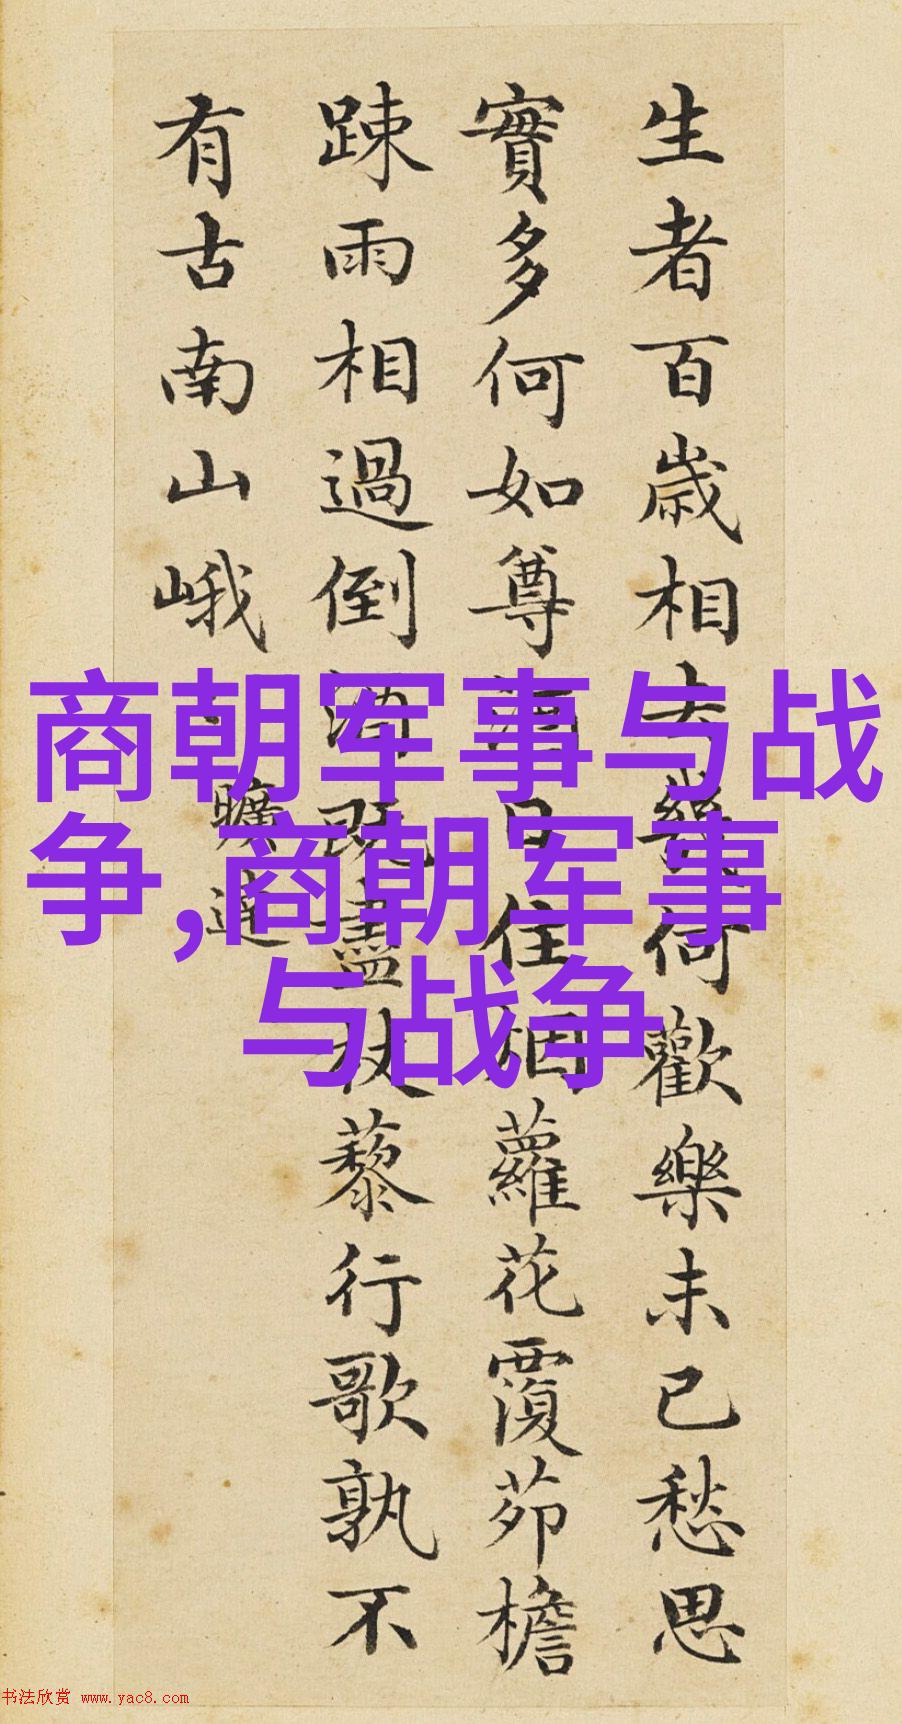 生者百歲相去幾何歡樂未已愁思
實多何如尊酒日往烟蘿花覆茆檐
踈雨相過倒酒既盡杖藜行歌孰不
有古南山峨
曠達
商朝军事与战
争,商朝军事
与战争
书法欣赏 www.yac8.com